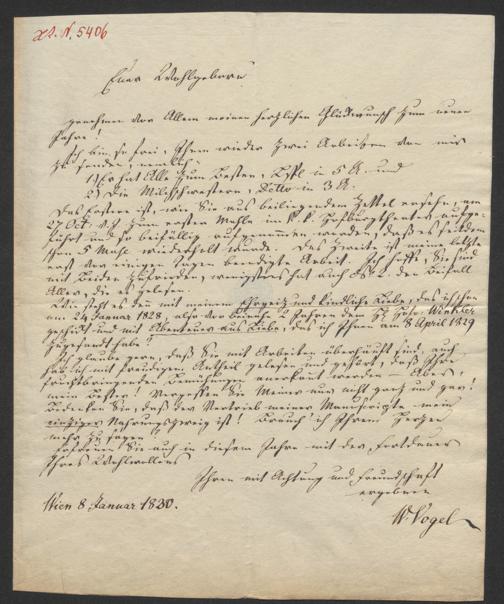 H. N. 5406
Euer Wohlgeboren
genehmen vor Allem meinen herzlichen Glückwunsch zum neuen
Jahre!
Ich bin so frei, Ihnen wieder zwei Arbeiten von mir
zu senden, nemlich:
1) Er hat Alle zum Besten, Lstpl in 5 A. und
2) Die Milchschwestern, Detto in 3 A.
Das Erstere ist, wie Sie aus beiliegendem Zettel ersehen, am
27 Oct. v. J. zum ersten Mahle im k. k. Hofburgtheater aufge-
führt und so beifällig aufgenommen worden, daß es seitdem
schon 5 Mahl wiederholt wurde. Das Zweite ist meine letzte
erst vor einigen Tagen beendigte Arbeit. Ich hoffe, Sie sind
mit Beiden zufrieden, wenigstens hat auch den Beifall
Aller, die es gelesen.
Wie steht es den mit meinem Ehrgeitz und kindliche Liebe, das ich schon
am 24 Januar 1828, also vor beinahe 2 Jahren dem Winkler
geschickt und mit Abenteuer aus Liebe, das ich Ihnen am 8 April 1829
zugesandt habe?
Ich glaube gern, daß Sie mit Arbeiten überhäuft sind, auch
hab ich mit freudigem Antheil gelesen und gehört, daß Ihre
fruchtbringenden Bemühungen anerkannt werden. Aber,
mein Bester! Vergessen Sie Meiner nur nicht ganz und gar!
Bedenken Sie, daß der Vertrieb meiner Manuscripte mein
einziger Nahrungszweig ist! Brauch ich Ihrem Herzen
mehr zu sagen?
Erfreuen Sie auch in diesem Jahre mit der Fortdauer
Ihres Wohlwollens
Ihren mit Achtung und Freundschaft
ergebenen
Wien 8 Januar 1830.
W. Vogel